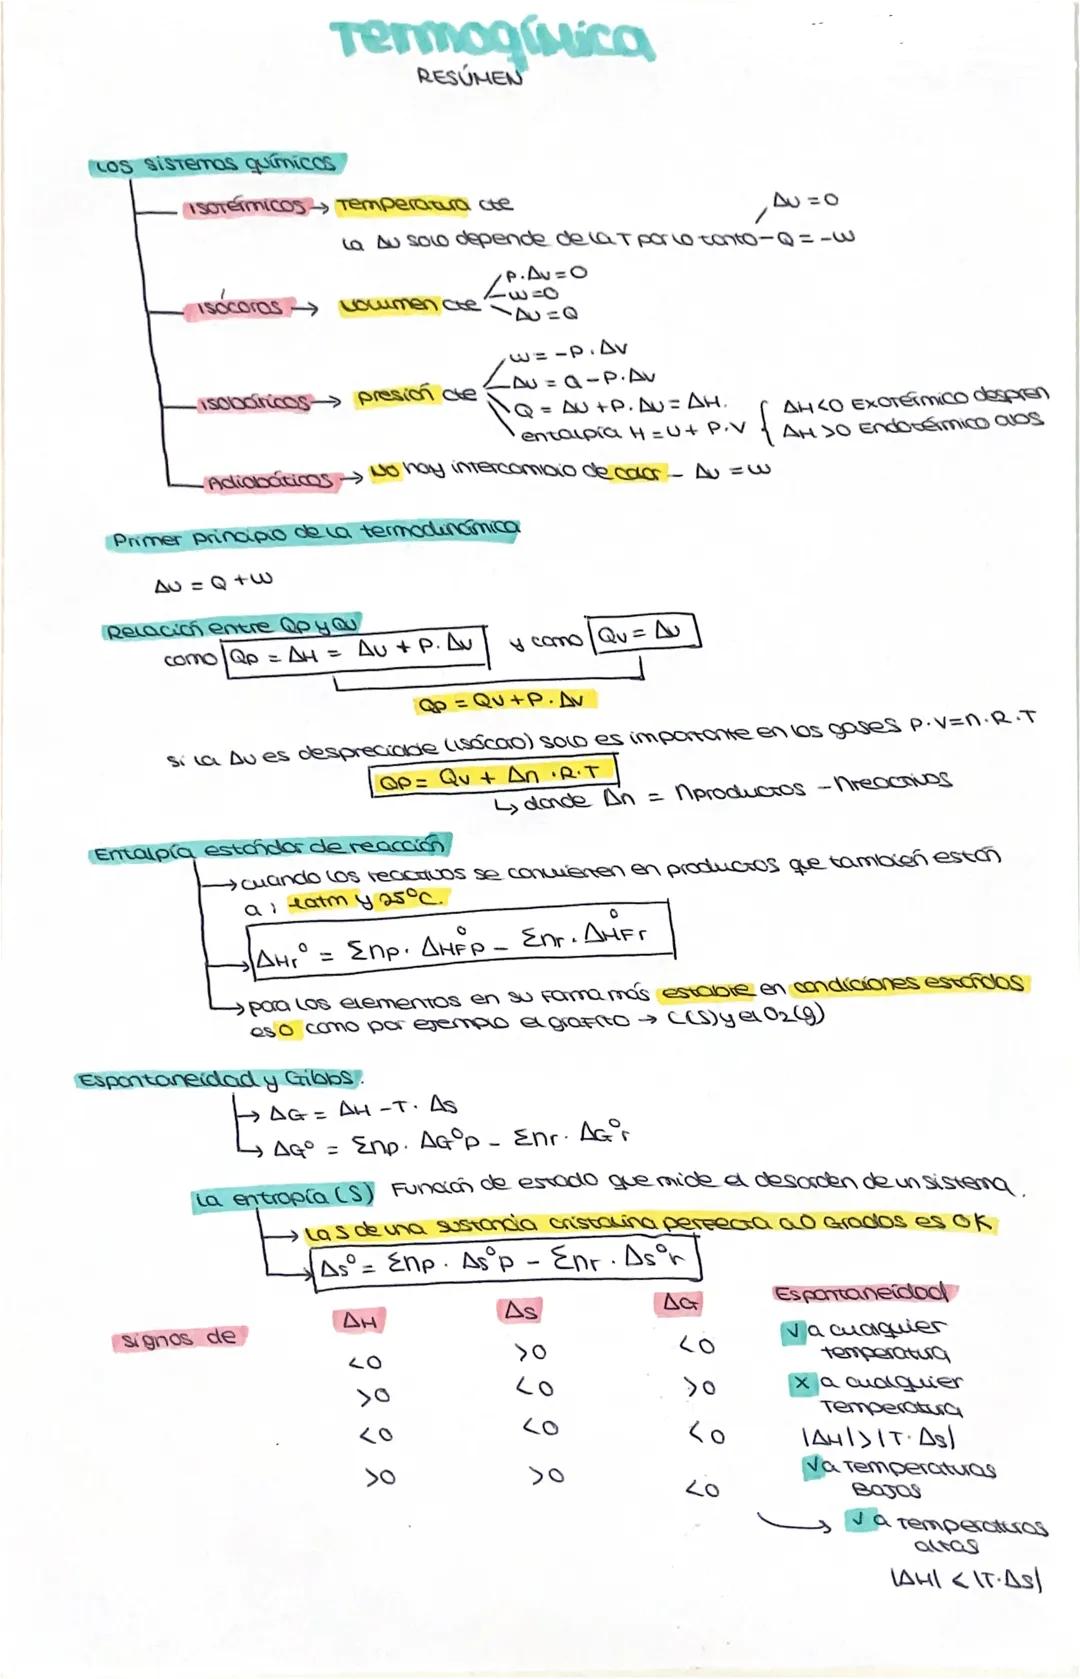 Termoquímica
RESÚMEN
Los sistemas químicos
Isotérmicos → Temperatura cte
ΔU = 0
La ΔU solo depende de la T por lo tanto - Q = -W
Isócoros → volumen cte
P. ΔV = 0
W = 0
ΔU = Q
Isobáricos → presión cte
W = -P. ΔV
ΔU = Q - P. ΔV
Q = ΔU + P. ΔU = ΔH.
entalpía H = U + P.V { ΔH<0 Exotérmico despren
ΔH >0 Endotérmico abs
Adiabáticos → No hay intercambio de calor - ΔU = W
Primer principio de la termodinámica
ΔU = Q + W
Relación entre Qp y Qv
como Qp = ΔH = ΔU + P. ΔU y como Qv = ΔU
Qp = Qv + P. ΔV
Si la ΔU es despreciable (isócoro) solo es importante en los gases P.V=n.R.T
QP = Qv + Δn .R.T
↳ donde Δn = nproductos - nreactivos
Entalpía estándar de reacción
→ cuando los reactivos se convierten en productos que también están
a: 1atm y 25°C.
→ ΔHr° = Σnp. ΔHF°p - Σnr. ΔHF°r
→ para los elementos en su forma más estable en condiciones estándas
es 0 como por ejemplo el grafito → C(S) y el O2(g)
Espontaneidad y Gibbs.
→ ΔG = ΔH - T. ΔS
↳ ΔG° = Σnp. ΔG°p - Σnr. ΔG°r
La entropía (S) Función de estado que mide el desorden de un sistema.
→ La S de una sustancia cristalina perfecta a 0 Grados es 0K
→ ΔS° = Σnp. ΔS°p - Σnr. ΔS°r
Signos de ΔH ΔS ΔG Espontaneidad
<0 >0 <0 √ a cualquier
temperatura
>0 <0 >0 x a cualquier
Temperatura
<0 <0 <0 |ΔH|>|T. ΔS|
√ a Temperaturas
Bajas
>0 >0 <0
→ √ a temperaturas
altas
|ΔH| < |T.ΔS|